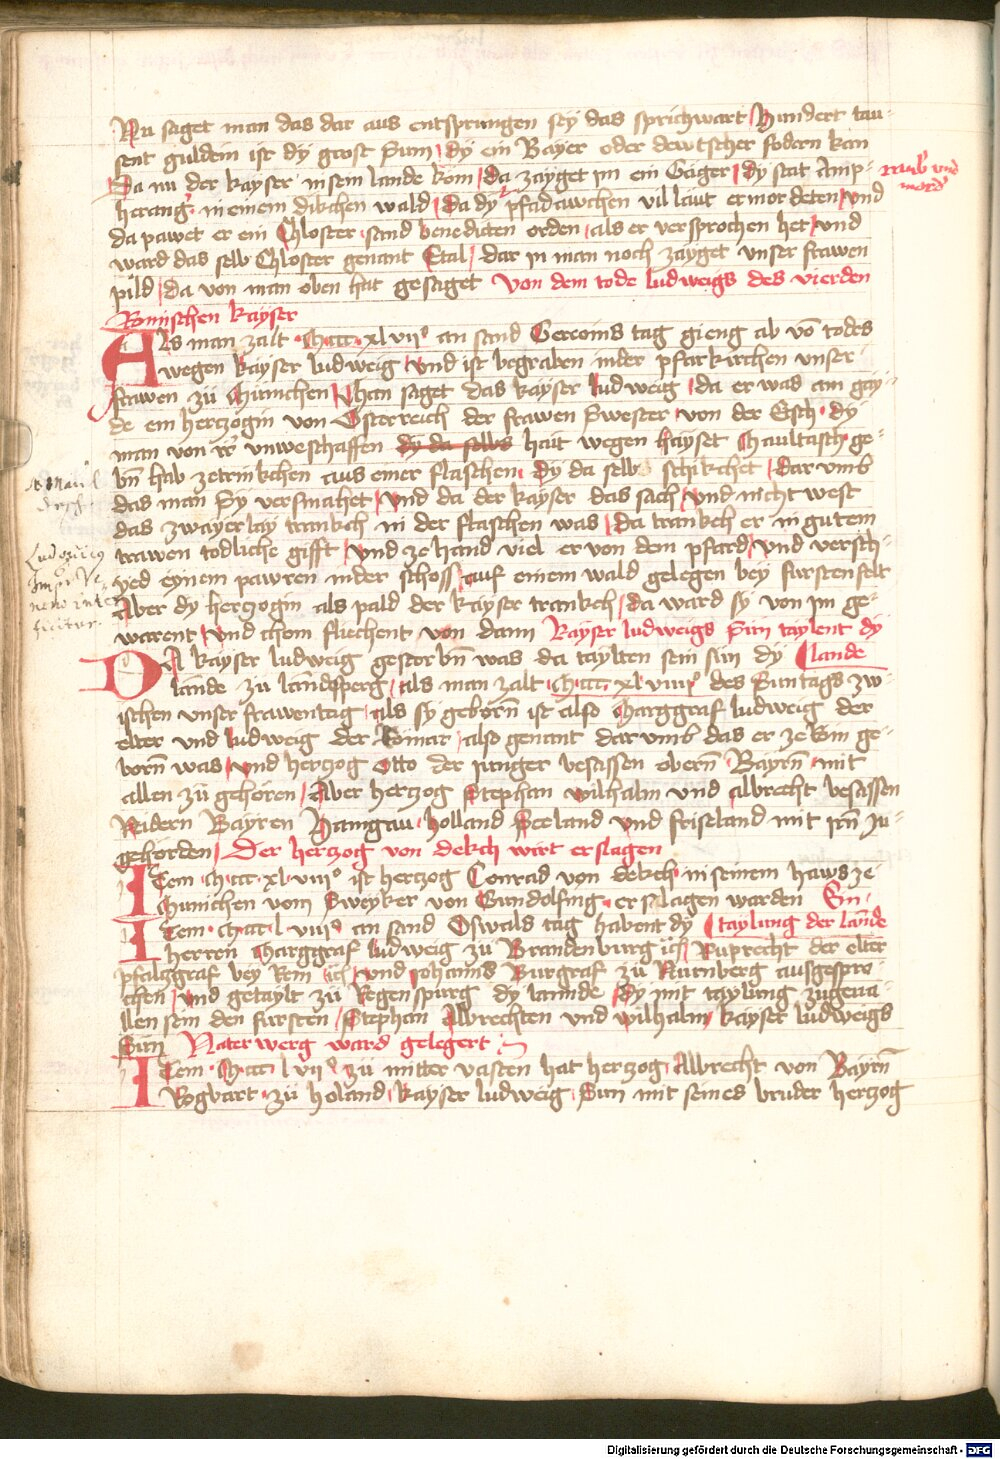 Nu saget man das dar aus entsprungen sey das sprichwart Hundert tau-
sent guldein ist dy grost Sum dy ein Bayer oder dewtscher fodern kan
Da nu der kayser in sein lande kom da zayget im ein Gäger dy stat Amp-
raub und
mord
herang in einem dikchen wald Da dy pfadawchen vil läut ermordeten und
da pawet er ein Chloster sand benedicten orden als er versprochen het und
ward das selb Chloster genant Etal dar in man noch zayget unser frawen
pild da von man oben hat gesaget Von dem tode ludweigs des vierden
Romischen kayser
Als man zalt Mccc xlvii° an sand Gereoins tag gieng ab vō todes
wegen kayser ludweig und ist begraben inder pfarkirchen unser
frawen zu Münichen Man saget das kayser ludweig da er was am gay-
de ein hertzogin von Österreich der frawen Swester von der Etsch dy
man von ir unweschaffen dy da selbs haut wegen hayset Maultasch ge-
bn hab zetrinkchen aus einer flaschen dy da selbs schikchet dar umb
das man Sy versmahet und da der kayser das sach und nicht west
das zwayerlay trankch in der flaschen was da trankch er in gutem
Ludovicus
Imper
trawen todliche gifft und ze hand viel er von dem pfard und versch-
yed eynem pawren inder schoss auf einem wald gelegen bey furstenfelt
Aber dy hertzogin als pald der kayser trankch da ward sy von im ge-
warent und chom fliechent von dann Kayser ludweigs Sün taylent dy
lande
Da kayser ludweig gestorbn was da taylten sein sün dy
lande zu landsperg als man zalt Mccc xlviiii° des Suntags zw-
ischen unser frawentag als sy geborn ist also Marggraf ludweig der
elter und ludweig der Romar also genant dar umb das er ze Rom ge-
born was und hertzog Otto der junger besassen obern Bayrn mit
allen zu gehören Aber hertzog Stephan wilhalm und Albrecht besassen
Nidern Bayren Hanigau holland Seeland und friseland mit irn zu-
gehörden Der hertzog von dekch wirt erslagen
Item Mccc xlviii° ist hertzog Conrad von dekch in seinem haws ze
Munichen vom Sweyker von Gundolfing erslagen warden Ein
taylung der lande
Item Mccc l viii° an sand Oswald tag habent dy
herren Marggraf ludweig zu Brandenburg ich Ruprecht der elter
pfalczgraf bey Rein ich und johanns Burgraf zu Nurnberg ausgespro-
chen und getaylt zu Regenspurg dy lannde dy mit taylung zugeua-
llen sein den fursten Stephan Albrechten und wilhalm kayser ludweigs
Sün Naterwerg ward gelegert
Item Mccc lvii° zu mitter vasten hat hertzog Albrecht von Bayrn
Rogbart zu holand kayser ludweig Sun mit seines bruder hertzog
Digitalisierung gefördert durch die Deutsche Forschungsgemeinschaft - DFG